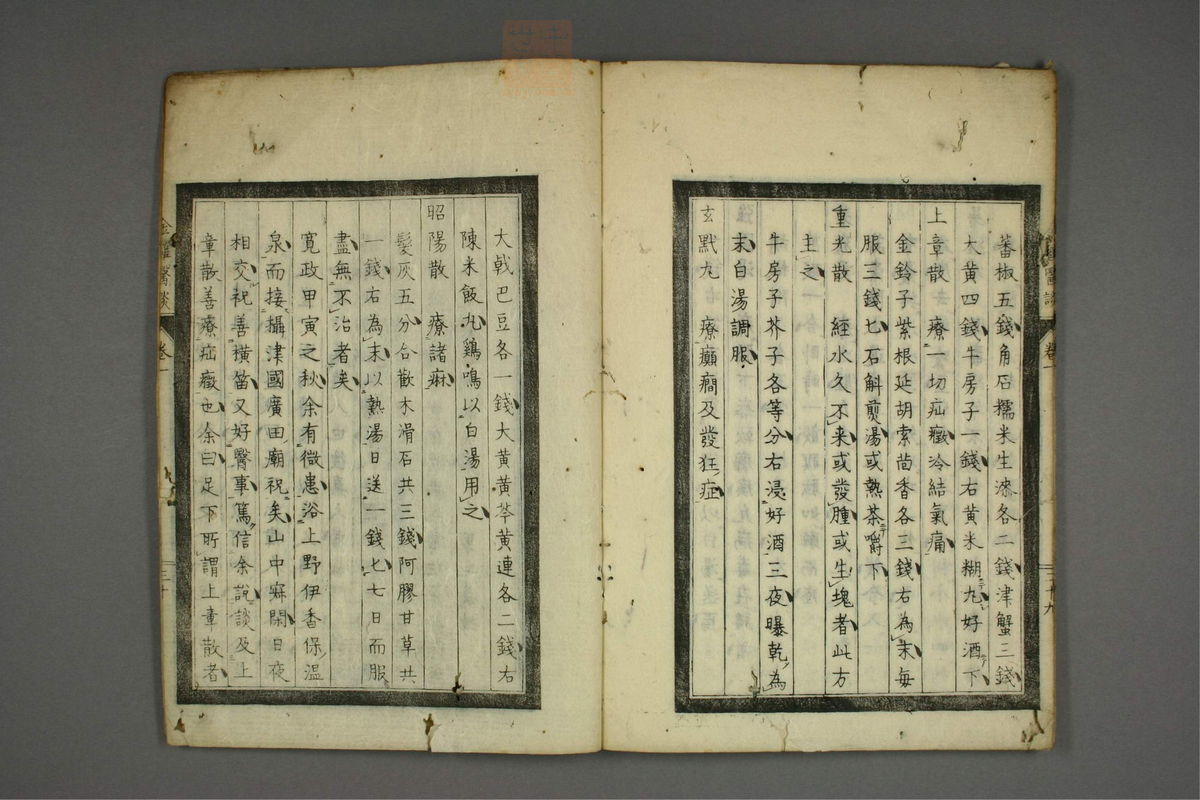 蕃椒五錢角石糯米生漆各二錢津蟹三錢
大黄四錢牛房子一錢右黄米糊丸好酒下
上章散　療一切疝癥冷結氣痛
金鈴子紫根延胡索茴香各三錢右為末毎
服三錢匕石斛煎湯或熟茶嚼下
重光散　經水久不来或發腫或生塊者此方
主之
牛房子芥子各等分右浸好酒三夜曝乾為
末白湯調服
玄黙丸　療癲癇及發狂症
大戟巴豆各一錢大黄黄芩黄連各二錢右
陳米飯丸鷄鳴以白湯用之
昭陽散　療諸痳
髪灰五分合歡木滑石共三錢阿膠甘草共
一錢右為末以熟湯日送一錢匕七日而服
盡無不治者矣
寛政甲寅之秋余有微患浴上野伊香保温
泉而接攝津國廣田廟祝矣山中寂閑日夜
相交祝善横笛又好醫事篤信余説談及上
章散善療疝癥也余曰足下所謂上章散者
醫談
卷一
三十
卷一
三十九